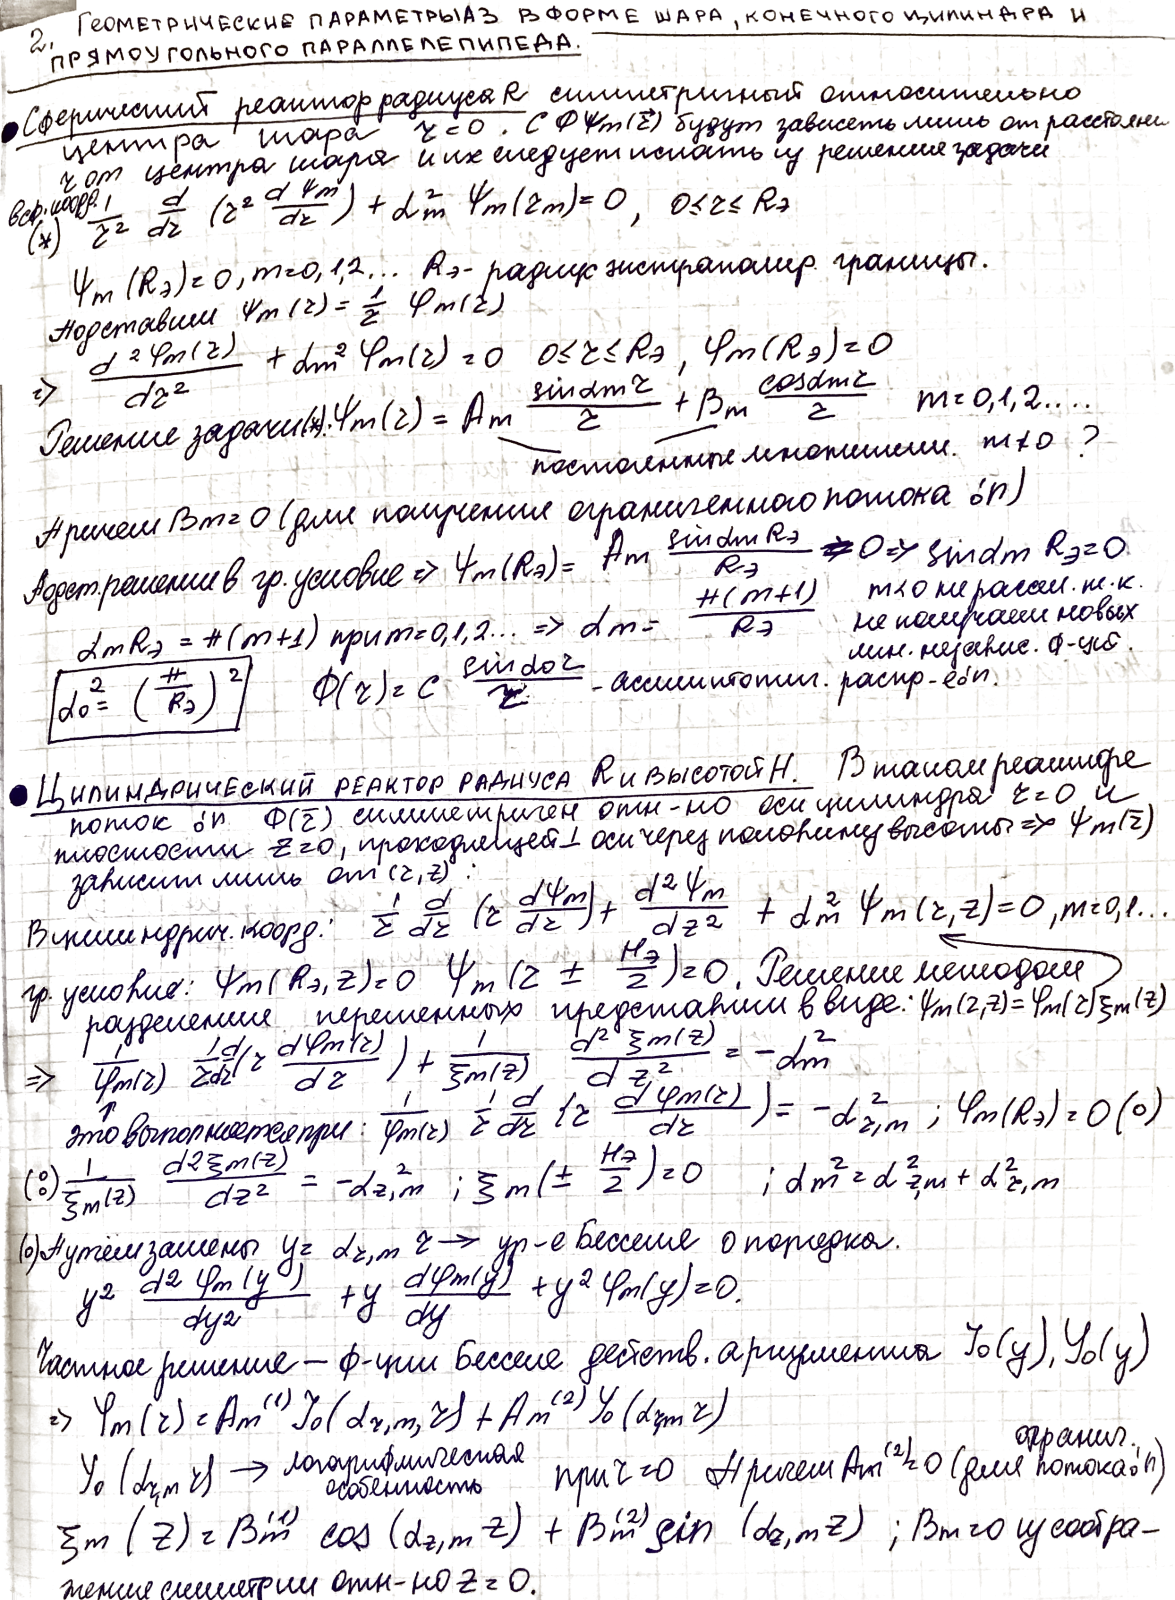 2. Геометрические параметры АЗ в форме шара, конечного цилиндра и
прямоугольного параллелепипеда.
• Сферический реактор радиуса R симметричный относительно
центра шара r=0. СФ Ψm(r̄) будут зависеть лишь от расстояния
r от центра шара и их следует искать из решения задачи
в сф. коорд. (*) 1/r² d/dr (r² dΨm/dr) + αm² Ψm(rm) = 0, 0≤r≤Rэ
Ψm(Rэ)=0, m=0,1,2... Rэ - радиус экстраполир. границы.
Подставим Ψm(r) = 1/r φm(r)
=> d²φm(r)/dr² + αm² φm(r) = 0 0≤r≤Rэ, φm(Rэ)=0
Решение задачи (*): Ψm(r) = Am sinαmr/r + Bm cosαmr/r m=0,1,2....
постоянные множители. m≠0 ?
Причем Bm=0 (для получения ограниченного потока ¹₀n)
Подст. решение в гр. условие => Ψm(Rэ) = Am sinαmRэ/Rэ => 0 => sinαm Rэ=0
αmRэ = π(m+1) при m=0,1,2... => αm = π(m+1)/Rэ m<0 не рассм. т.к.
не получаем новых
лин. независ. ф-ций.
α₀² = (π/Rэ)² Φ(r) = C sinα₀r/r - ассимптотич. распр-е ¹₀n.
• Цилиндрический реактор радиуса R и высотой H. В таком реакторе
поток ¹₀n Φ(r̄) симметричен отн-но оси цилиндра r=0 и
плоскости z=0, проходящей ⊥ оси через половину высоты => Ψm(r̄)
зависит лишь от (r,z):
В цилиндрич. коорд.: 1/r d/dr (r dΨm/dr) + d²Ψm/dz² + αm² Ψm(r,z)=0, m=0,1...
гр. условие: Ψm(Rэ,z)=0 Ψm(r ± Hэ/2)=0. Решение методом
разделения переменных представим в виде: Ψm(r,z)=φm(r)ξm(z)
=> 1/φm(r) 1/r d/dr (r dφm(r)/dr) + 1/ξm(z) d²ξm(z)/dz² = -αm²
это выполняется при: 1/φm(r) 1/r d/dr (r dφm(r)/dr) = -α²r,m ; φm(Rэ)=0 (o)
(oo) 1/ξm(z) d²ξm(z)/dz² = -αz,m² ; ξm(± Hэ/2)=0 ; αm² = α²z,m + α²r,m
(o) Путем замены y = αr,m r → ур-е Бесселя 0 порядка.
y² d²φm(y)/dy² + y dφm(y)/dy + y² φm(y)=0.
Частное решение — ф-ции Бесселя действ. аргумента J₀(y), Y₀(y)
=> φm(r) = Am⁽¹⁾ J₀(αr,m, r) + Am⁽²⁾ Y₀(αr,m r)
Y₀(αr,m r) → логарифмическая особенность при r=0 Причем Am⁽²⁾=0 (для огранич. потока ¹₀n)
ξm(z) = Bm⁽¹⁾ cos(αz,m z) + Bm⁽²⁾ sin(αz,m z) ; Bm=0 из сообра-
жения симметрии отн-но z=0.